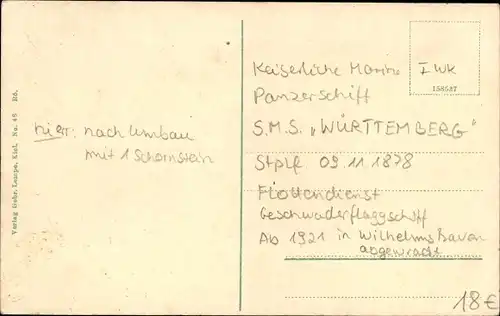 Verlag Gebr. Lempe, Kiel. No. 45 Rö.
hier: nach Umbau
mit 1 Schornstein
Kaiserliche Marine I WK
158537
Panzerschiff
S.M.S. „WÜRTTEMBERG"
Stplf 09.11.1878
Flottendienst
Geschwaderflaggschiff
Ab 1921 in Wilhelmshaven
abgewrackt
18€